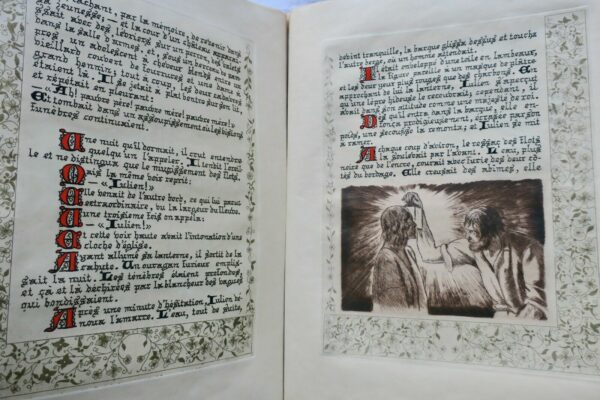 tachant, par la mémoire, de revenir dans
sa jeunesse; — et la cour d'un château apparais
sait avec des lévriers sur un perron, des
dans la salle d'armes, et, sous un berceau de
pres, un adolescent à cheveux blonds entre
vieillard couvert de fourrures et une dame
grand hennin; tout à coup, les deux cadavres
étaient là. Il se jetait à plat ventre sur son lit
et répétait en pleurant:
— « Ah! pauvre père! pauvre mère! pauvre mère! »
Et tombait dans un assoupissement où les visions
funèbres continuaient.
Une nuit qu'il dormait, il crut entendre
quelqu'un l'appeler. Il tendit l'oreil
le et ne distingua que le mugissement des flots.
Mais la même voix reprit:
— « Julien! »
Elle venait de l'autre bord, ce qui lui parut
extraordinaire, vu la largeur du fleuve.
Une troisième fois on appela:
— « Julien! »
Et cette voix haute avait l'intonation d'une
cloche d'église.
Ayant allumé sa lanterne, il sortit de la
cahute. Un ouragan furieux emplis
sait la nuit. Les ténèbres étaient profondes,
et çà et là déchirées par la blancheur des vagues
qui bondissaient.
Après une minute d'hésitation, Julien dé
noua l'amarre. L'eau, tout de suite,
devint tranquille, la barque glissa dessus et toucha
l'autre berge, où un homme attendait.
Il était enveloppé d'une toile en lambeaux,
la figure pareille à un masque de plâtre
et les deux yeux plus rouges que des charbons. En
approchant de lui la lanterne, Julien s'aperçut
qu'une lèpre hideuse le recouvrait; cependant, il
avait dans son attitude comme une majesté de roi.
Dès qu'il entra dans la barque, elle en
fonça prodigieusement, écrasée par son
poids; une secousse la remonta; et Julien se mit
à ramer.
A chaque coup d'aviron, le ressac des flots
la soulevait par l'avant. L'eau, plus
noire que de l'encre, courait avec furie des deux cô
tés du bordage. Elle creusait des abîmes, elle